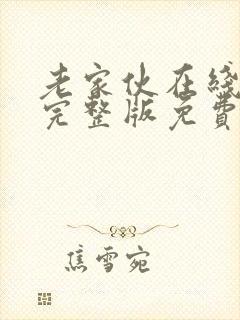 老家伙在綫
完整版免費
焦雪宛